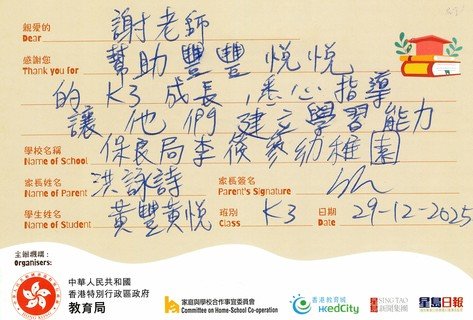 親愛的 謝老師
Dear
感謝您 幫助豐豐 悅悅
Thank you for
的 K3 成長,悉心指導
讓他們建立學習能力
學校名稱 保良局李俊駒幼稚園
Name of School
家長姓名 洪詠詩 家長簽名
Name of Parent Parent's Signature
學生姓名 黃豐黃悅 班別 K3 日期 29-12-2025
Name of Student Class Date
主辦機構:
Organisers:
中華人民共和國
香港特別行政區政府
教育局
家庭與學校合作事宜委員會
Committee on Home-School Co-operation
香港教育城
HKedCity
星島新聞集團
SING TAO NEWS CORPORATION
星島日報